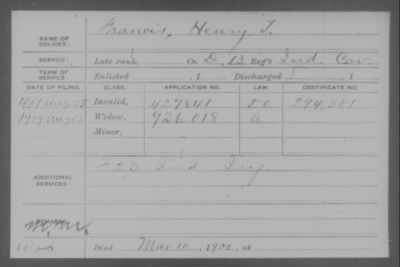 NAME OF SOLDIER: Francis, Henry T.
SERVICE: Late rank, Co. D, 13 Reg't Ind. Cav.
TERM OF SERVICE Enlisted , 1 Discharged , 1
DATE OF FILING. CLASS. APPLICATION NO. LAW. CERTIFICATE NO.
Aug Invalid, 427841 294,381
1900 Aug Widow, 726,018
Minor,
ADDITIONAL SERVICES: Ind Inf.
REMARKS:
Died Mar 10, 1900, at